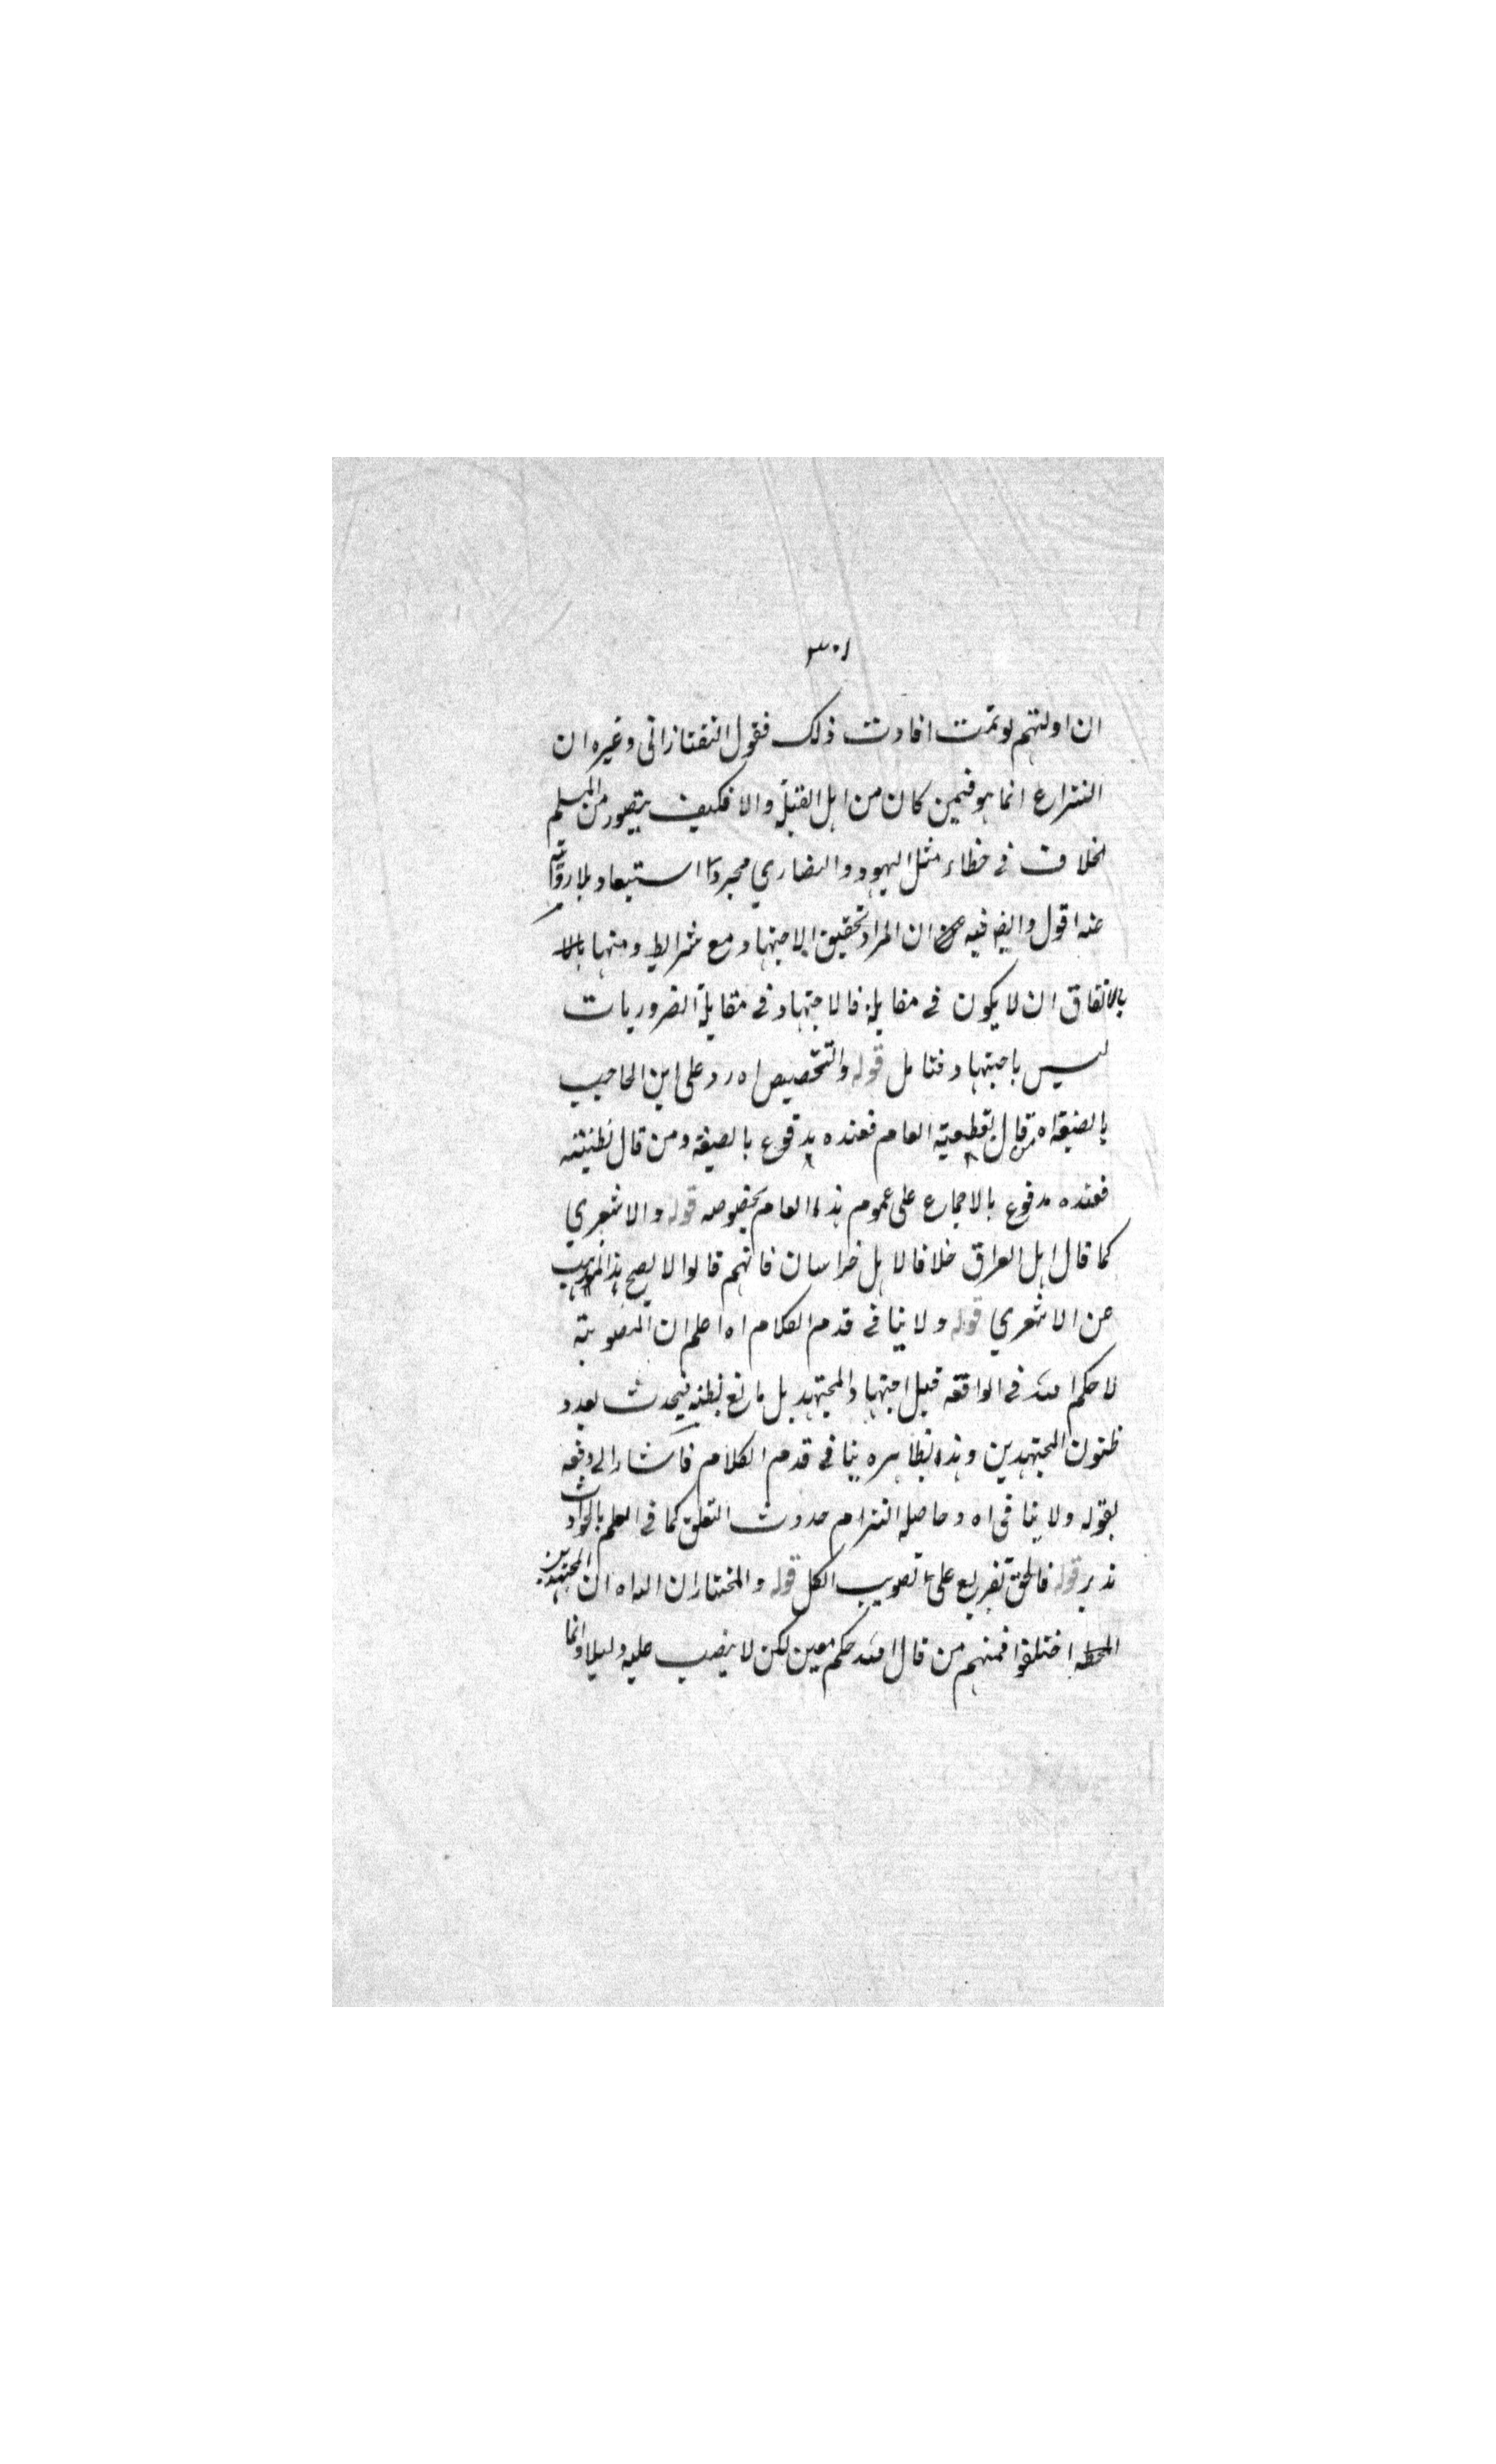 ٣٠١
ان ادلتهم لو تمت افادت ذلك فقول التفتازانى وغيره ان
النزاع انما هو فيمن كان من اهل القبلة والا فكيف يتصور من المسلم
الخلاف فى خطاء مثل اليهود والنصارى مجرد استبعاد بلا
عنه اقول وايضا فيه ان المراد تحقيق الاجتهاد مع شرايط ومنها
بالاتفاق ان لا يكون فى مقابلة فالاجتهاد فى مقابلة الضروريات
ليس باجتهاد فتامل قوله والتخصيص اه رد على ابن الحاجب
بالصيغة اه من قال بقطعية العام فعنده مدفوع بالصيغة ومن قال بظنيته
فعنده مدفوع بالاجماع على عموم هذا العام بخصوصه قوله والاشعري
كما قال اهل العراق خلافا لاهل خراسان فانهم قالوا لا يصح هذا المذهب
عن الاشعري قوله ولا ينافى قدم الكلام اه اعلم ان المصوبة
لا حكم لله فى الواقعة قبل اجتهاد المجتهد بل تابع لظنه فيحدث بعدد
ظنون المجتهدين وهذا بظاهره ينافى قدم الكلام فاشار الى دفعه
بقوله ولا ينافى اه وحاصله التزام حدوث التعلق كما فى العلم بالحوادث
تدبر قوله فالحق تفريع على تصويب الكل قوله والمختار ان لله اه ان المجتهدين
المخطئة اختلفوا فمنهم من قال لله حكم معين لكن لا ينصب عليه دليلا وانما